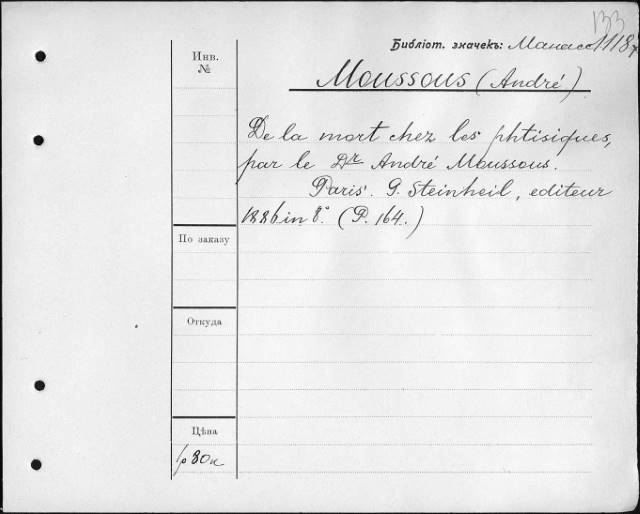 133
Библіот. значекъ: Манасс 1187
Инв.
№
Moussous (André)
De la mort chez les phtisiques,
par le Dr André Moussous.
Paris. G. Steinheil, editeur
1886 in 8°. (P. 164.)
По заказу
Откуда
Цѣна
1р 80к